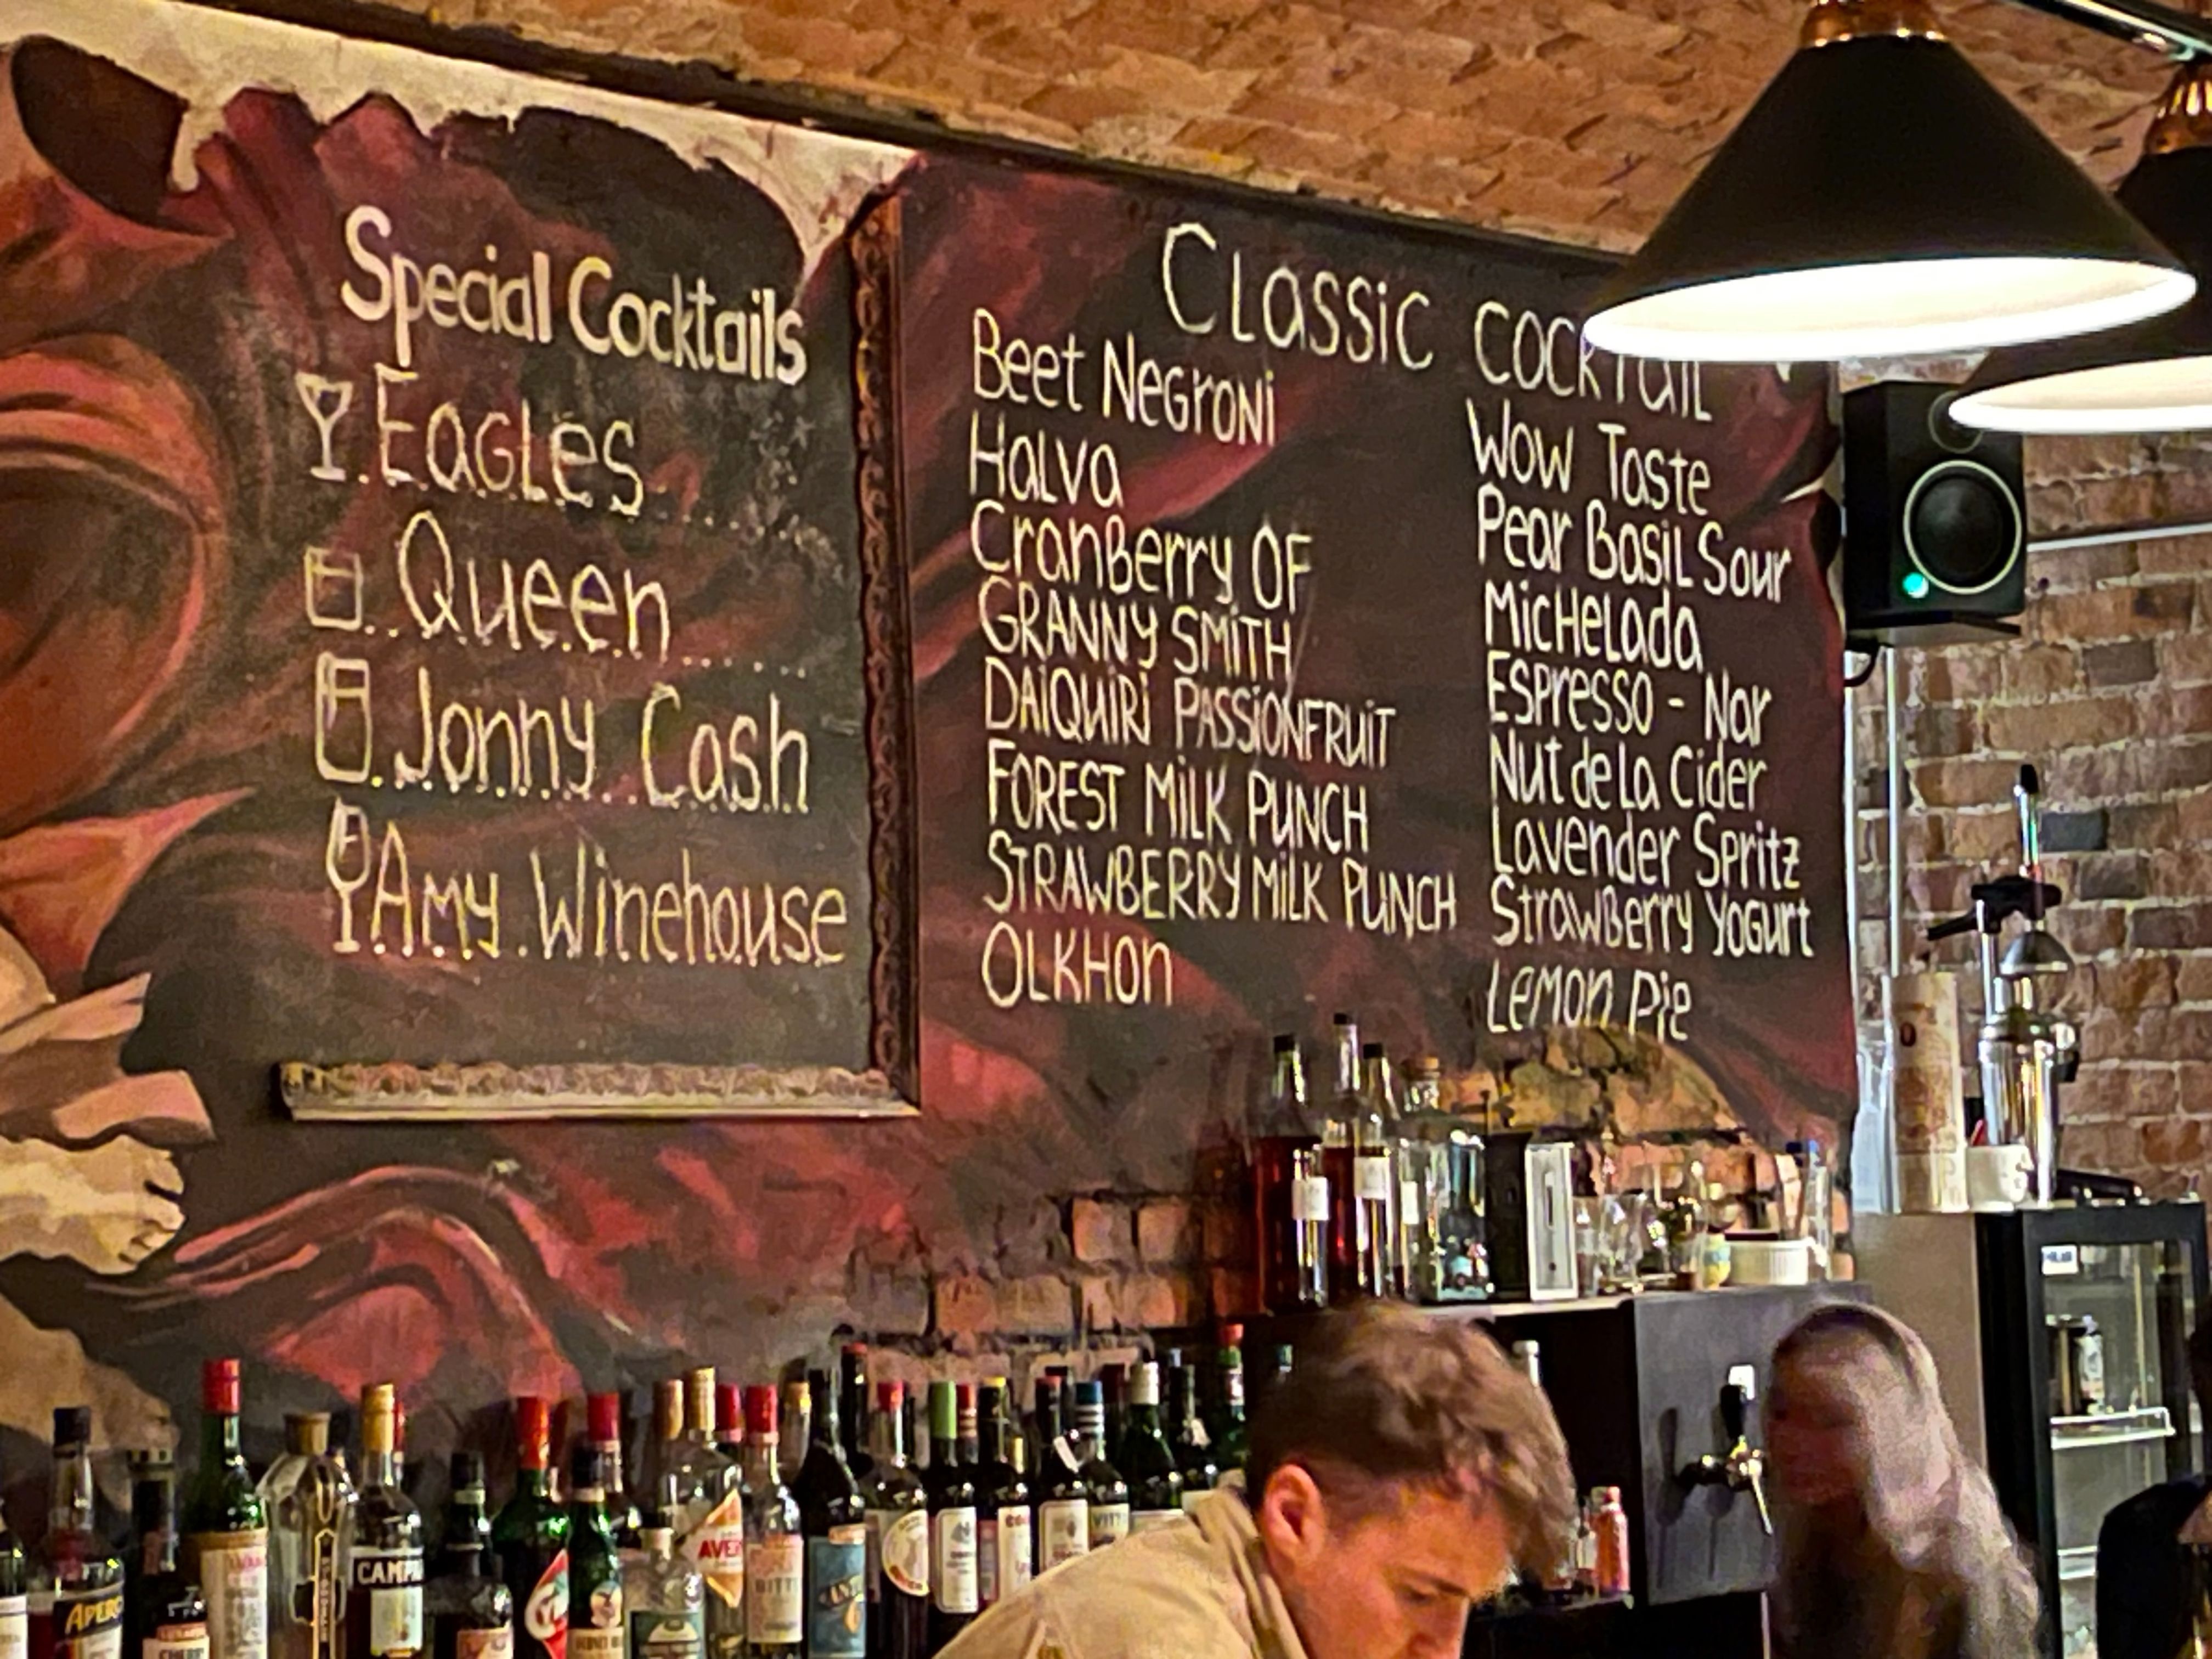 Special Cocktails
Eagles
Queen
Jonny Cash
Amy Winehouse
Classic cocktail
Beet Negroni
Halva
Cranberry OF
GRANNY SMiTH
DAiQUiRi PASSiONFRUiT
FOREST MiLK PUNCH
STRAWBERRY MiLK PUNCH
OLKHon
Wow Taste
Pear Basil Sour
Michelada
Espresso - Nar
Nut de La Cider
Lavender Spritz
Strawberry Yogurt
Lemon Pie
CAMPA
APERO
AVER